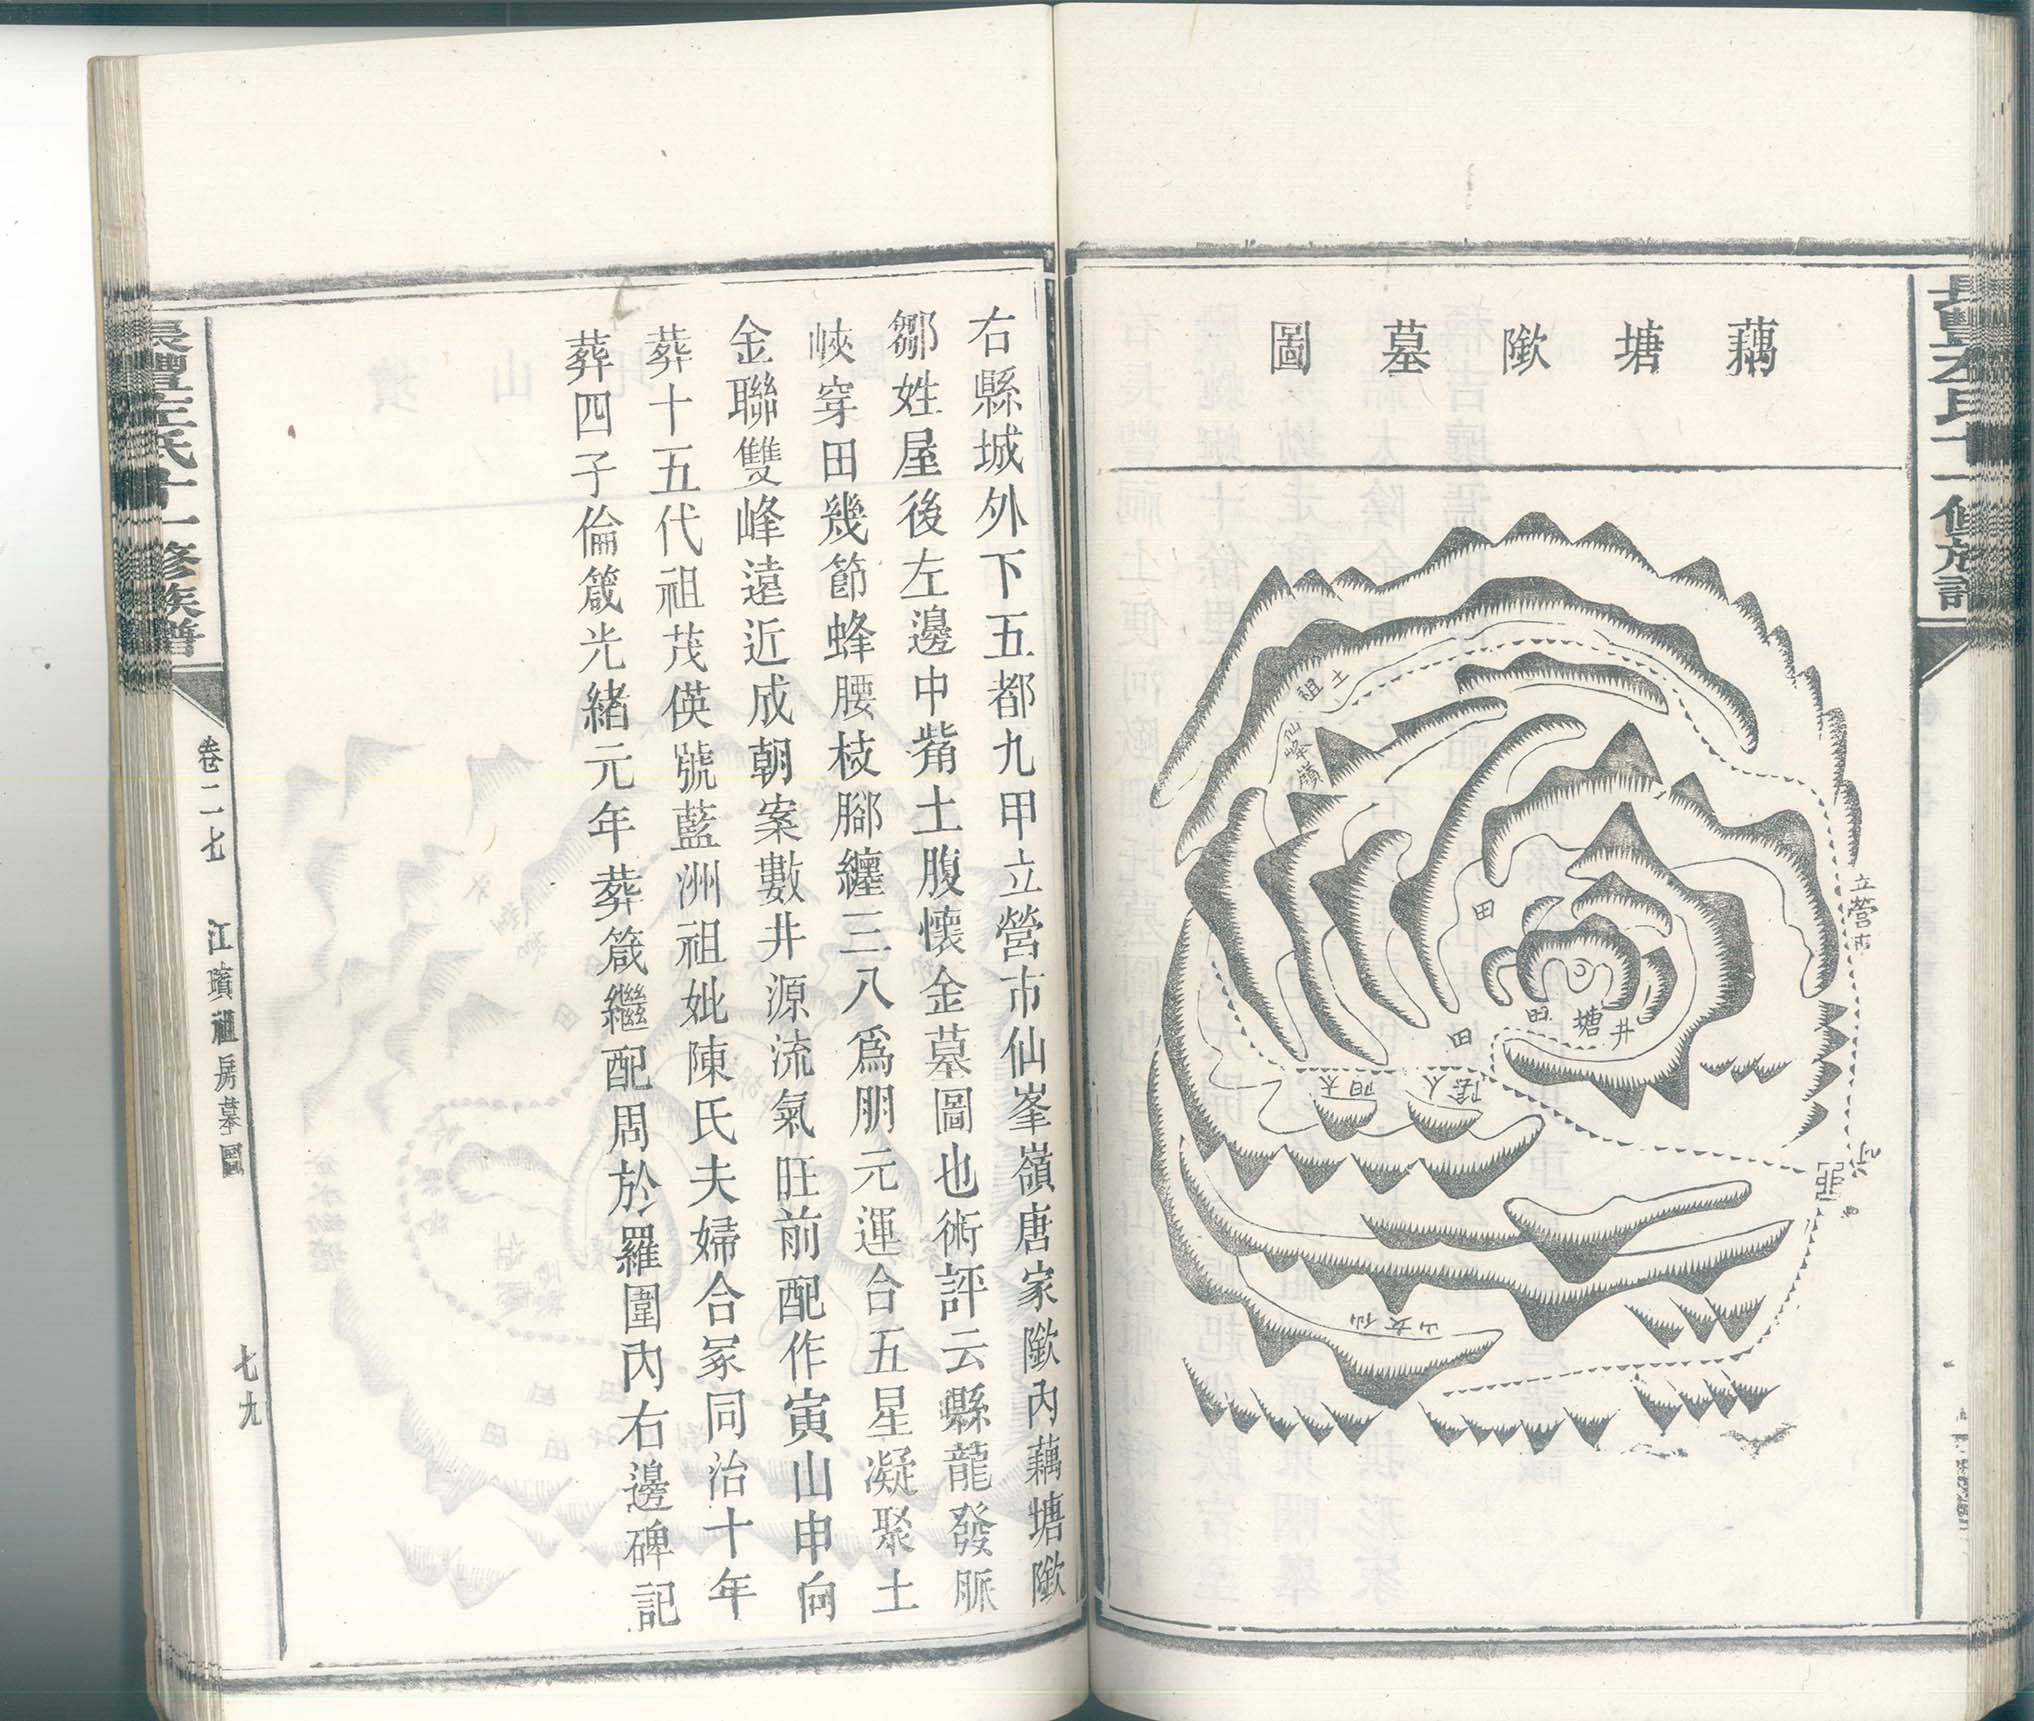 藕塘塹墓圖
土
祖
仙峯嶺
立營市
田
田
田
塘
井
太
陰
仙女山
右縣城外下五都九甲立營市仙峯嶺唐家塹內藕塘塹
鄒姓屋後左邊中觜土腹懷金墓圖也術評云縣龍發脈
峽穿田幾節蜂腰枝腳纏三八爲朋元運合五星凝聚土
金聯雙峰遠近成朝案數井源流氣旺前配作寅山申向
葬十五代祖茂偀號藍洲祖妣陳氏夫婦合冢同治十年
葬四子倫箴光緒元年葬箴繼配周於羅圍內右邊碑記
左氏十一修族譜
卷二七
江
祖房墓圖
七九